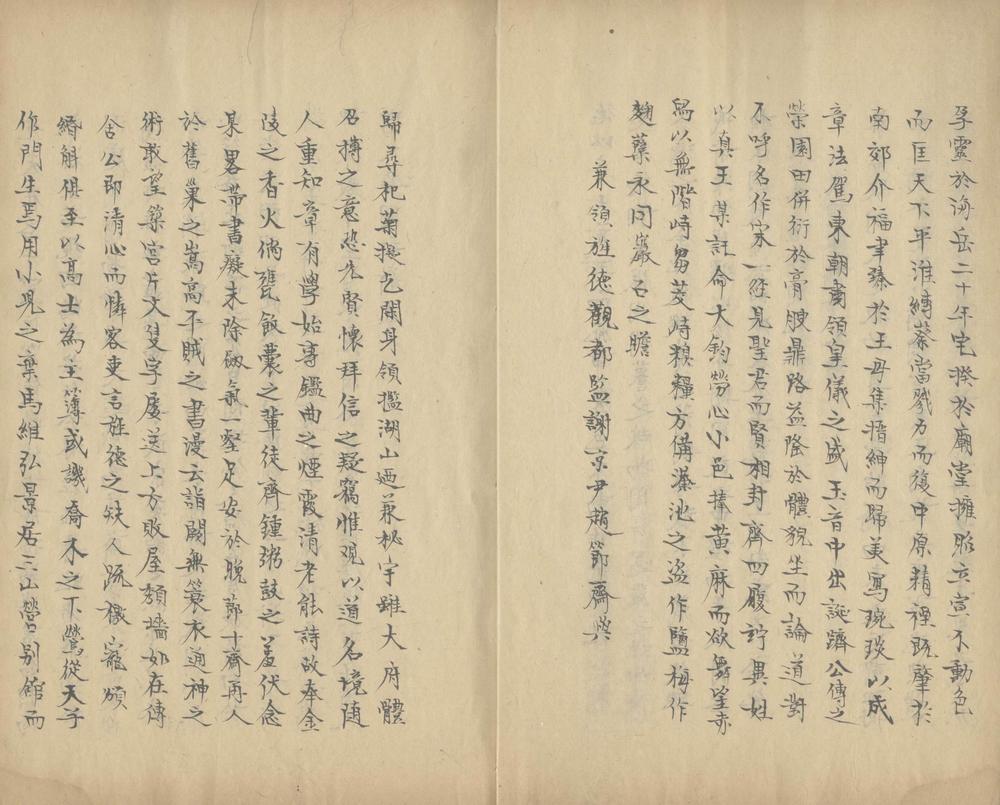 孕靈於海岳二十年宅揆於廟堂擁脈立宣不動色
而匡天下平淮縛蔡當戮力而復中原精禋既肇於
南郊介福聿臻於王母集搢紳而歸美寫琬琰以成
章法駕東朝肅領皇儀之盛玉音中出誕躋公傳之
榮園田併衍於膏腴鼎路益隆於體貌坐而論道對
不呼名作宋一經見聖君而賢相封齊四履詝異姓
以真王某託命大鈞勞心小邑捧黃麻而欲舞望赤
舄以無階峙芻茭峙糗糧方備潢池之盗作鹽梅作
麴蘖永同巖石之瞻
兼領旌德觀都監謝京尹趙節齋與
歸尋杞菊提乞閑身領攬湖山廼兼秘宇雖大府體
召摶之意恐先賢懷拜信之疑竊惟觀以道名境随
人重知章有學始專鑑曲之煙霞清老能詩故奉金
陵之香火倘甕飯囊之輩徒齊鍾粥鼓之羞伏念
某畧帶書癡未除劔氣一壑足安於晚節十齋再人
於舊巢之嵩高不賊之書漫云詣闕無蓑衣通神之
術敢望築宮片文隻字屡送上方敗屋頽墻如在傳
舍公即清心而憐客吏言旌德之缺人疏檄寵頒
緡斛俱至以高士為主簿或譏喬木之下鶯從天子
作門生焉用小兒之棄馬維弘景居三山營别館而